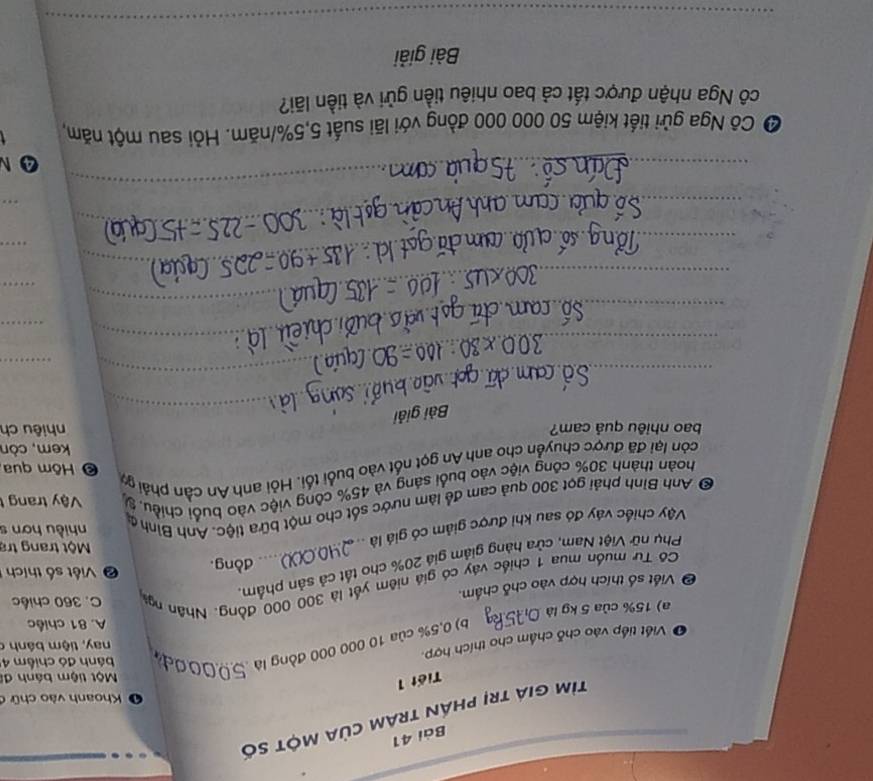 Bài 41
TÌM GIÁ TRỊ PHẦN TRĂM CỦA MỘT SỐ
Tiết 1
1 Viết tiếp vào chỗ chấm cho thích hợp.
a) 15% của 5 kg là 0,75kg b) 0,5% của 10 000 000 đồng là 50 000
2 Viết số thích hợp vào chỗ chấm.
Cô Tư muốn mua 1 chiếc váy có giá niêm yết là 300 000 đồng. Nhân ngày
Phụ nữ Việt Nam, cửa hàng giảm giá 20% cho tất cả sản phẩm.
Vậy chiếc váy đó sau khi được giảm có giá là ...240.000... đồng.
3 Anh Bình phải gọt 300 quả cam để làm nước sốt cho một bữa tiệc. Anh Bình
hoàn thành 30% công việc vào buổi sáng và 45% công việc vào buổi chiều.
còn lại đã được chuyển cho anh An gọt nốt vào buổi tối. Hỏi anh An cần phải gọt
bao nhiêu quả cam?
Bài giải
Số cam đã gọt vào buổi sáng là:
300 x 30 : 100 = 90 (quả)
Số cam đã gọt vào buổi chiều là:
300 x 45 : 100 = 135 (quả)
Tổng số quả cam đã gọt là: 135 + 90 = 225 (quả)
Số quả cam anh An cần gọt là: 300 - 225 = 75 (quả)
Đáp số: 75 quả cam.
4 Cô Nga gửi tiết kiệm 50 000 000 đồng với lãi suất 5,5%/năm. Hỏi sau một năm,
cô Nga nhận được tất cả bao nhiêu tiền gửi và tiền lãi?
Bài giải
1 Khoanh vào chữ
Một tiệm bánh
bánh đó chiếm
nay, tiệm bánh
A. 81 chiếc
C. 360 chiếc
2 Viết số thích
Một trang
nhiều hơn
Vậy trang
3 Hôm qua,
kem, còn
nhiêu
4